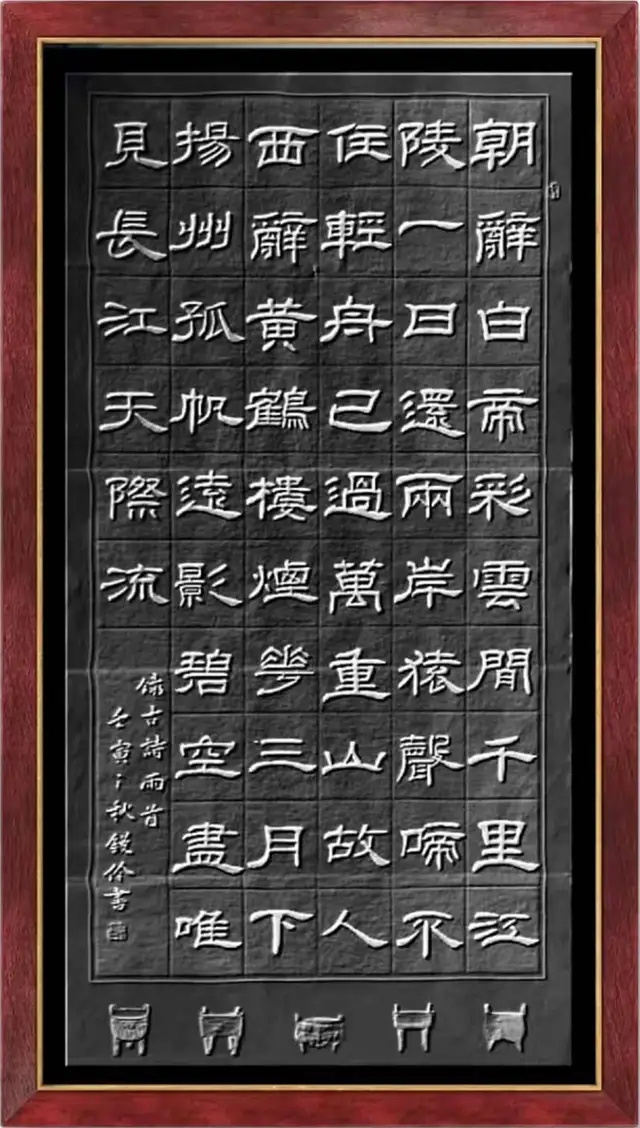 朝辭白帝彩雲間千里江
陵一日還兩岸猿聲啼不
住輕舟已過萬重山故人
西辭黃鶴樓煙花三月下
揚州孤帆遠影碧空盡唯
見長江天際流
錄古詩兩首
壬寅之秋書